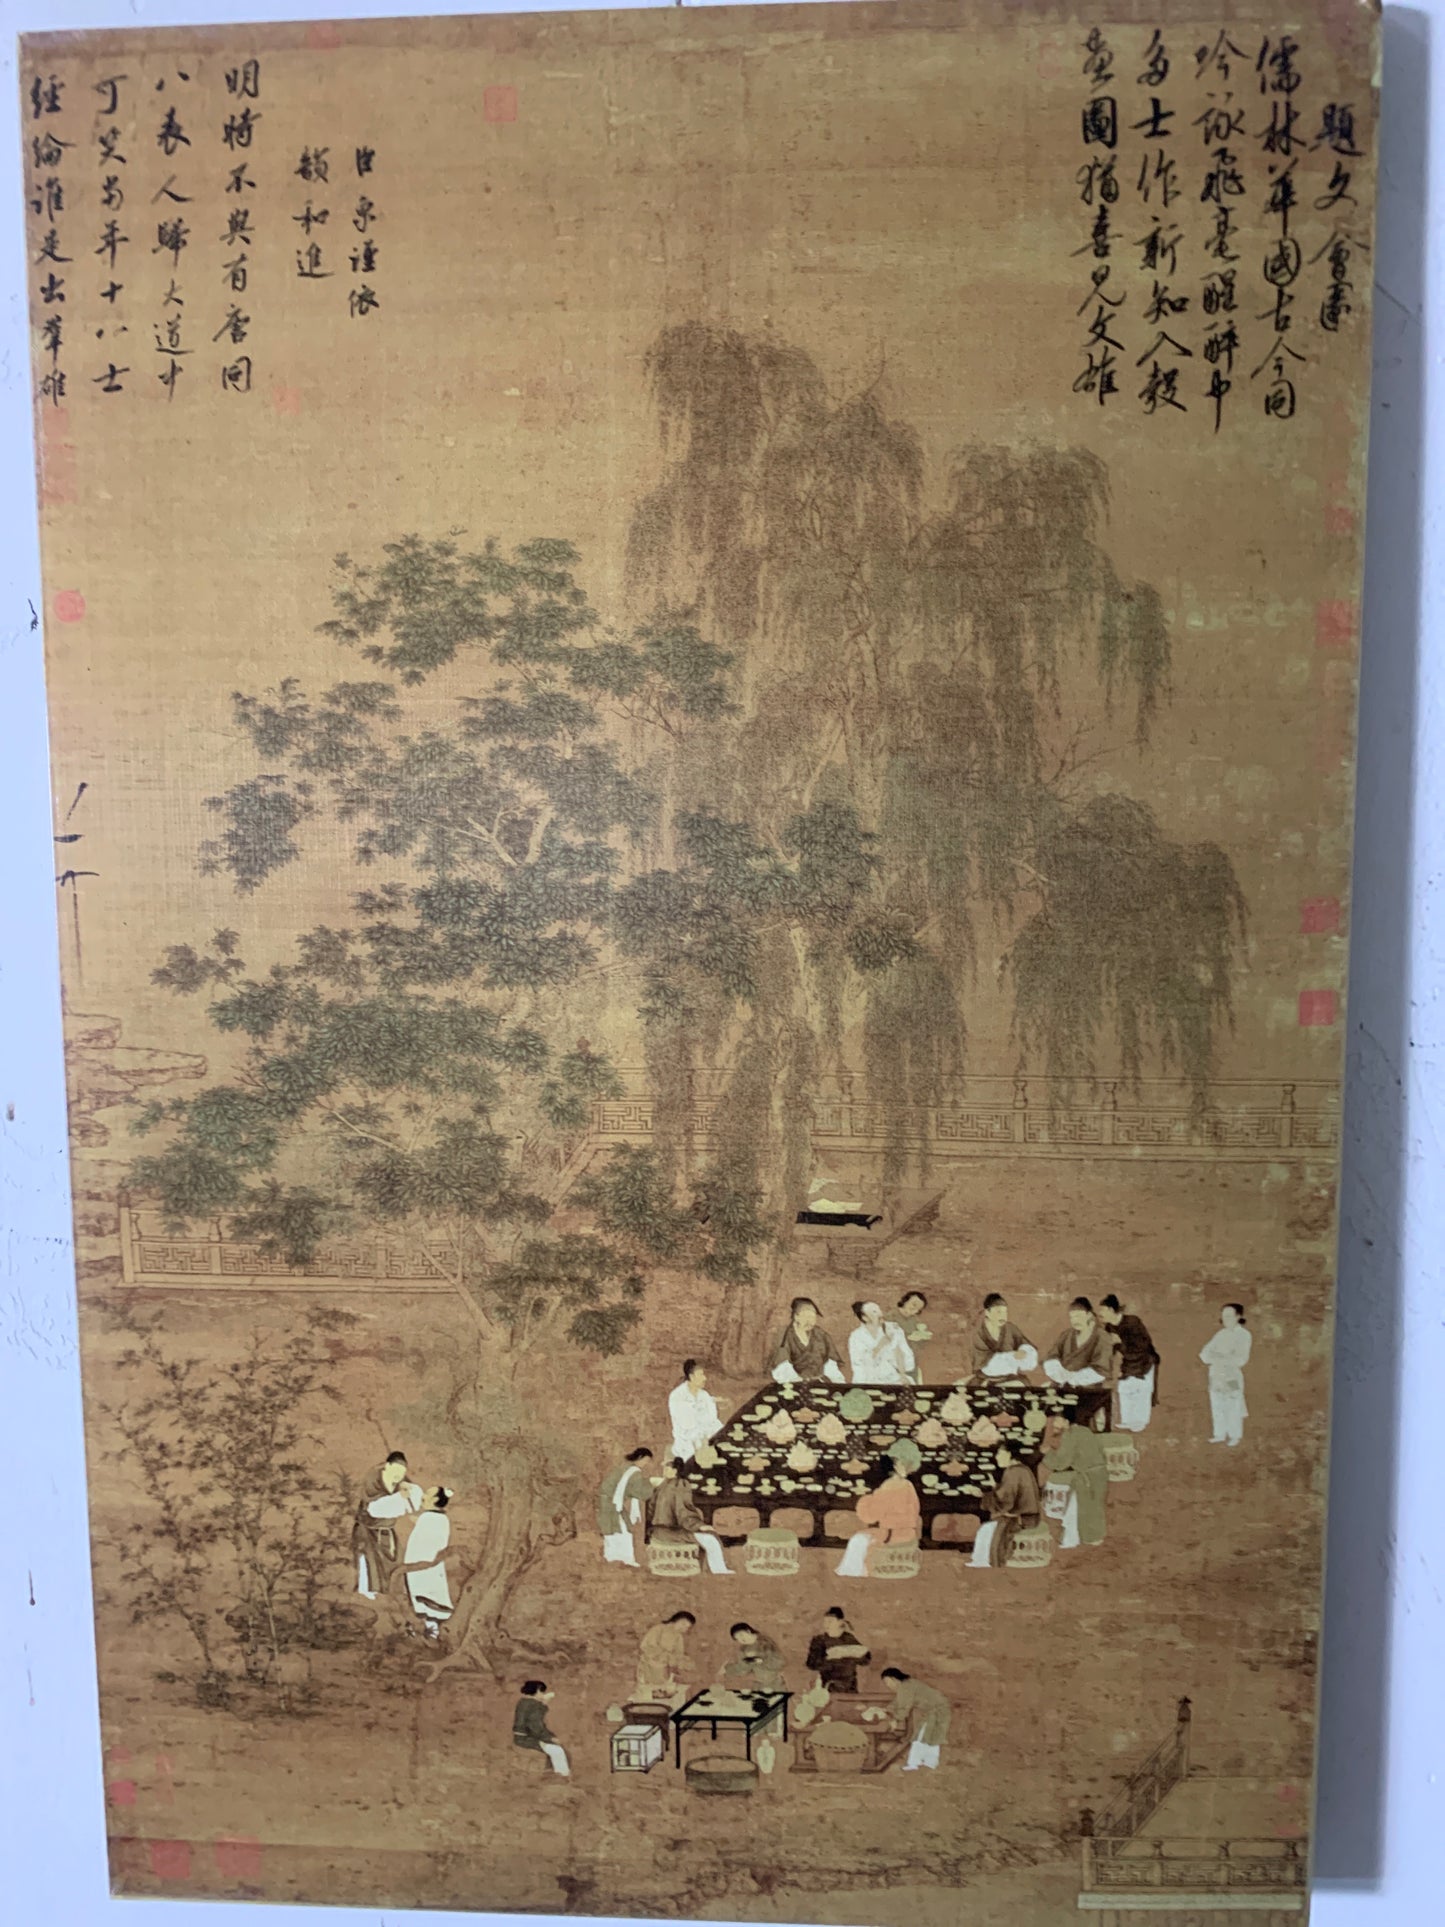 題文會圖
儒林華國古今同
吟詠飛毫醒醉中
多士作新知入彀
畫圖猶喜見文雄
臣京謹依
韻和進
明時不與有唐同
八表人歸大道中
可笑當年十八士
經綸誰是出群雄
天下一人